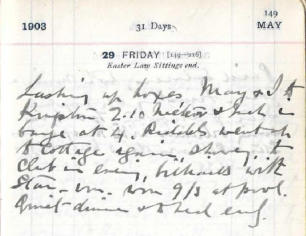 149
1903 31 Days MAY
29 FRIDAY [149-216]
Easter Law Sittings end.
Lashing up boxes. May & I to
Kingston 2.10 & back in
at 4. went on
to Cottage again, to
Club in evening, billiards with
Star won 9/3 at pool.
Quiet dinner & to bed early.